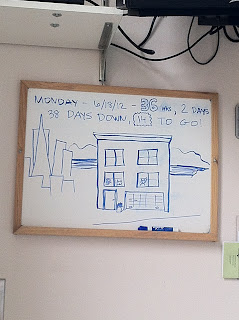 MONDAY - 6/18/12 - 36 HRS, 2 DAYS
38 DAYS DOWN, 14 TO GO!